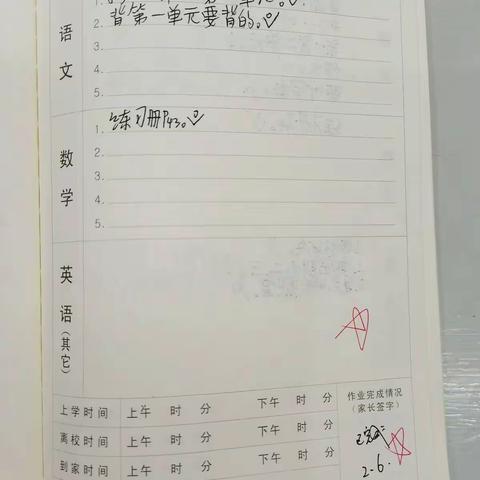 语文
1.
背第一单元要背的。
3.
4.
5.
数学
1. 练习册P43。
2.
3.
4.
5.
英语(其它)
上学时间 上午 时 分 下午 时 分
离校时间 上午 时 分 下午 时 分
到家时间 上午 时 分 下午 时 分
作业完成情况
(家长签字)
2.6.